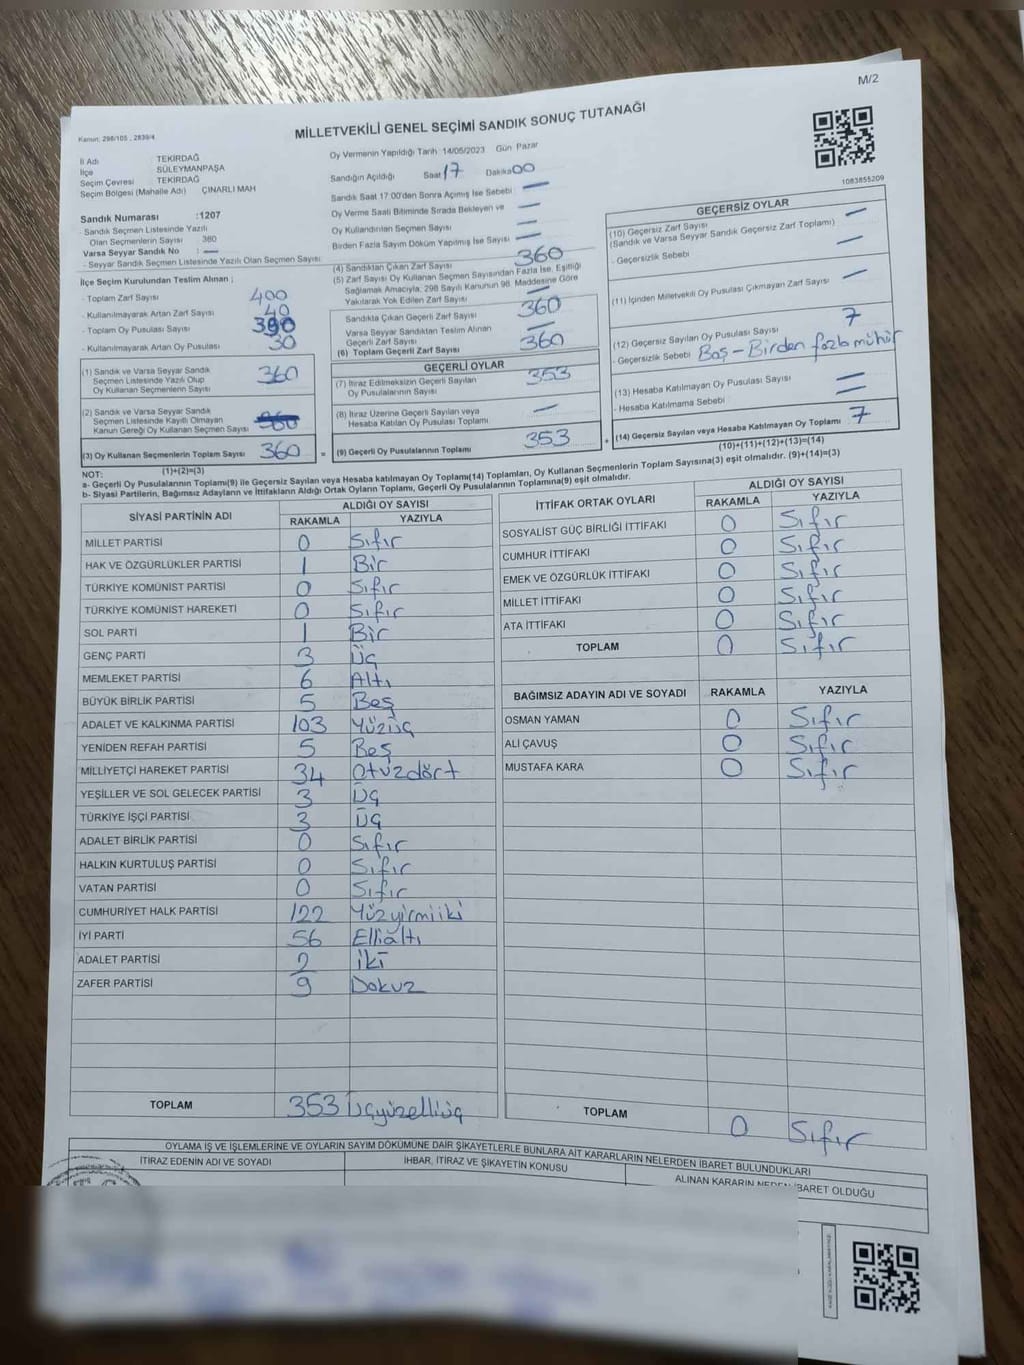 M/2
Kanun: 298/105 , 2839/4
MİLLETVEKİLİ GENEL SEÇİMİ SANDIK SONUÇ TUTANAĞI
İl Adı TEKİRDAĞ
İlçe SÜLEYMANPAŞA
Seçim Çevresi TEKİRDAĞ
Seçim Bölgesi (Mahalle Adı) ÇINARLI MAH
Sandık Numarası :1207
- Sandık Seçmen Listesinde Yazılı
Olan Seçmenlerin Sayısı 360
Varsa Seyyar Sandık No : —
- Seyyar Sandık Seçmen Listesinde Yazılı Olan Seçmen Sayısı
Oy Vermenin Yapıldığı Tarih 14/05/2023 Gün Pazar
Sandığın Açıldığı Saat 17 Dakika 00
Sandık Saat 17:00'den Sonra Açımış İse Sebebi —
Oy Verme Saati Bitiminde Sırada Bekleyen ve —
Oy Kullandırılan Seçmen Sayısı —
Birden Fazla Sayım Döküm Yapılmış İse Sayısı —
1083855209
İlçe Seçim Kurulundan Teslim Alınan ;
- Toplam Zarf Sayısı 400
- Kullanılmayarak Artan Zarf Sayısı 40
- Toplam Oy Pusulası Sayısı 390
- Kullanılmayarak Artan Oy Pusulası 30
(1) Sandık ve Varsa Seyyar Sandık
Seçmen Listesinde Yazılı Olup
Oy Kullanan Seçmenlerin Sayısı 360
(2) Sandık ve Varsa Seyyar Sandık
Seçmen Listesinde Kayıtlı Olmayan
Kanun Gereği Oy Kullanan Seçmen Sayısı
(3) Oy Kullanan Seçmenlerin Toplam Sayısı 360 =
(1)+(2)=(3)
(4) Sandıktan Çıkan Zarf Sayısı 360
(5) Zarf Sayısı Oy Kullanan Seçmen Sayısından Fazla İse, Eşitliği
Sağlamak Amacıyla, 298 Sayılı Kanunun 98. Maddesine Göre
Yakılarak Yok Edilen Zarf Sayısı —
Sandıkta Çıkan Geçerli Zarf Sayısı 360
Varsa Seyyar Sandıktan Teslim Alınan
Geçerli Zarf Sayısı —
(6) Toplam Geçerli Zarf Sayısı 360
GEÇERLİ OYLAR
(7) İtiraz Edilmeksizin Geçerli Sayılan
Oy Pusulalarının Sayısı 353
(8) İtiraz Üzerine Geçerli Sayılan veya
Hesaba Katılan Oy Pusulası Toplamı —
(9) Geçerli Oy Pusulalarının Toplamı 353 +
GEÇERSİZ OYLAR
(10) Geçersiz Zarf Sayısı
(Sandık ve Varsa Seyyar Sandık Geçersiz Zarf Toplamı) —
- Geçersizlik Sebebi —
(11) İçinden Milletvekili Oy Pusulası Çıkmayan Zarf Sayısı —
(12) Geçersiz Sayılan Oy Pusulası Sayısı 7
- Geçersizlik Sebebi Boş - Birden fazla mühür
(13) Hesaba Katılmayan Oy Pusulası Sayısı —
- Hesaba Katılmama Sebebi —
(14) Geçersiz Sayılan veya Hesaba Katılmayan Oy Toplamı 7
(10)+(11)+(12)+(13)=(14)
NOT:
a- Geçerli Oy Pusulalarının Toplamı(9) ile Geçersiz Sayılan veya Hesaba katılmayan Oy Toplamı(14) Toplamları, Oy Kullanan Seçmenlerin Toplam Sayısına(3) eşit olmalıdır. (9)+(14)=(3)
b- Siyasi Partilerin, Bağımsız Adayların ve İttifakların Aldığı Ortak Oyların Toplamı, Geçerli Oy Pusulalarının Toplamına(9) eşit olmalıdır.
SİYASİ PARTİNİN ADI ALDIĞI OY SAYISI
RAKAMLA YAZIYLA
MİLLET PARTİSİ 0 Sıfır
HAK VE ÖZGÜRLÜKLER PARTİSİ 1 Bir
TÜRKİYE KOMÜNİST PARTİSİ 0 Sıfır
TÜRKİYE KOMÜNİST HAREKETİ 0 Sıfır
SOL PARTİ 1 Bir
GENÇ PARTİ 3 Üç
MEMLEKET PARTİSİ 6 Altı
BÜYÜK BİRLİK PARTİSİ 5 Beş
ADALET VE KALKINMA PARTİSİ 103 Yüzüç
YENİDEN REFAH PARTİSİ 5 Beş
MİLLİYETÇİ HAREKET PARTİSİ 34 Otuzdört
YEŞİLLER VE SOL GELECEK PARTİSİ 3 Üç
TÜRKİYE İŞÇİ PARTİSİ 3 Üç
ADALET BİRLİK PARTİSİ 0 Sıfır
HALKIN KURTULUŞ PARTİSİ 0 Sıfır
VATAN PARTİSİ 0 Sıfır
CUMHURİYET HALK PARTİSİ 122 Yüzyirmiiki
İYİ PARTİ 56 Ellialtı
ADALET PARTİSİ 2 İki
ZAFER PARTİSİ 9 Dokuz
TOPLAM 353 Üçyüzelliüç
İTTİFAK ORTAK OYLARI ALDIĞI OY SAYISI
RAKAMLA YAZIYLA
SOSYALİST GÜÇ BİRLİĞİ İTTİFAKI 0 Sıfır
CUMHUR İTTİFAKI 0 Sıfır
EMEK VE ÖZGÜRLÜK İTTİFAKI 0 Sıfır
MİLLET İTTİFAKI 0 Sıfır
ATA İTTİFAKI 0 Sıfır
TOPLAM 0 Sıfır
BAĞIMSIZ ADAYIN ADI VE SOYADI RAKAMLA YAZIYLA
OSMAN YAMAN 0 Sıfır
ALİ ÇAVUŞ 0 Sıfır
MUSTAFA KARA 0 Sıfır
TOPLAM 0 Sıfır
OYLAMA İŞ VE İŞLEMLERİNE VE OYLARIN SAYIM DÖKÜMÜNE DAİR ŞİKAYETLERLE BUNLARA AİT KARARLARIN NELERDEN İBARET BULUNDUKLARI
İTİRAZ EDENİN ADI VE SOYADI İHBAR, İTİRAZ VE ŞİKAYETİN KONUSU ALINAN KARARIN NEDEN İBARET OLDUĞU